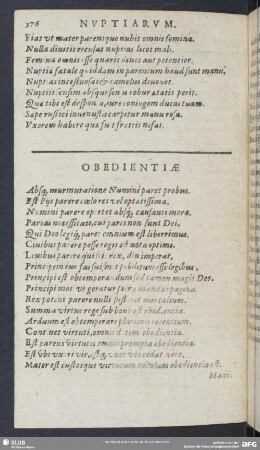 176 NVPTIARVM.
Fiat ut mater parensque nubit omnis femina.
Nulla divitis recusat nuptias licet mali.
Femina omnis esse quærit dives aut potentior.
Nuptiæ fatale quiddam in parentum haud sunt manu.
Nuptias incestuosas
Nuptiis sensim absque sensu robur ætatis perit.
Quæ tibi est desponsa, iure coniugem ducas tuam.
Sæpe rustici invenustas carpitur manu rosa.
Vxorem habere quæ fuit fratris nefas.
OBEDIENTIÆ
Absq; murmuratione Numini paret probus.
Est Pijs parere cœlo res vel optatissima.
Numini parere oportet absq; causanti mora.
Pareas necessitati, cui pares non sunt Dei.
Qui Deo legiq; paret omnium est liberrimus.
Civibus parere posse regis est nota optimi.
Legibus parere quisit: rex, diu imperat.
Principem ius fas
Principi est obtemperandum sed tamen magis Deo.
Principi mos ut geratur sacra mandat pagina.
Rex potens parere nulli sustinet mortalium.
Summa virtus rege sub bono est obedientia.
Arduum est obtemperare
Continet virtutis omnis
Est parens virtutis omnis prompta obedientia.
Est Vbi uxori virestq; uxor ubi cedat viro.
Mater est custosque virtutum omnium obedientia est.
Maxi-
SLUB
DFG